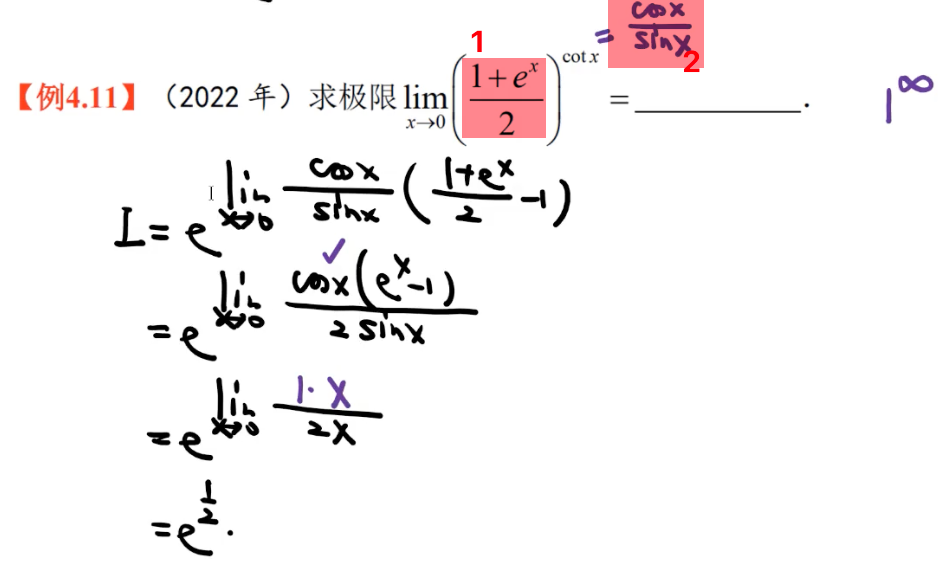 = cosx/sinx
1
2
【例4.11】（2022 年）求极限 lim x→0 ((1+e^x)/2)^cot x = ________. 1^∞
I = e^lim x→0 cosx/sinx ((1+e^x)/2 -1)
✓
= e^lim x→0 cosx(e^x-1)/2sinx
= e^lim x→0 1·x/2x
= e^1/2.